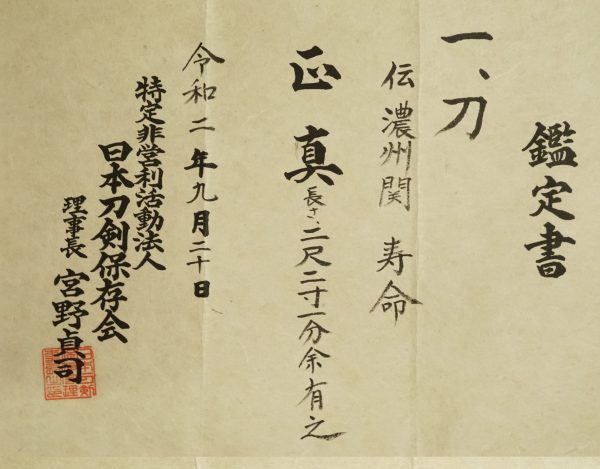 鑑定書
一、刀
伝 濃州関 寿命
正真 長さ、二尺二寸一分余有之
令和二年九月二十日
特定非営利活動法人
日本刀剣保存会
理事長 宮野貞司